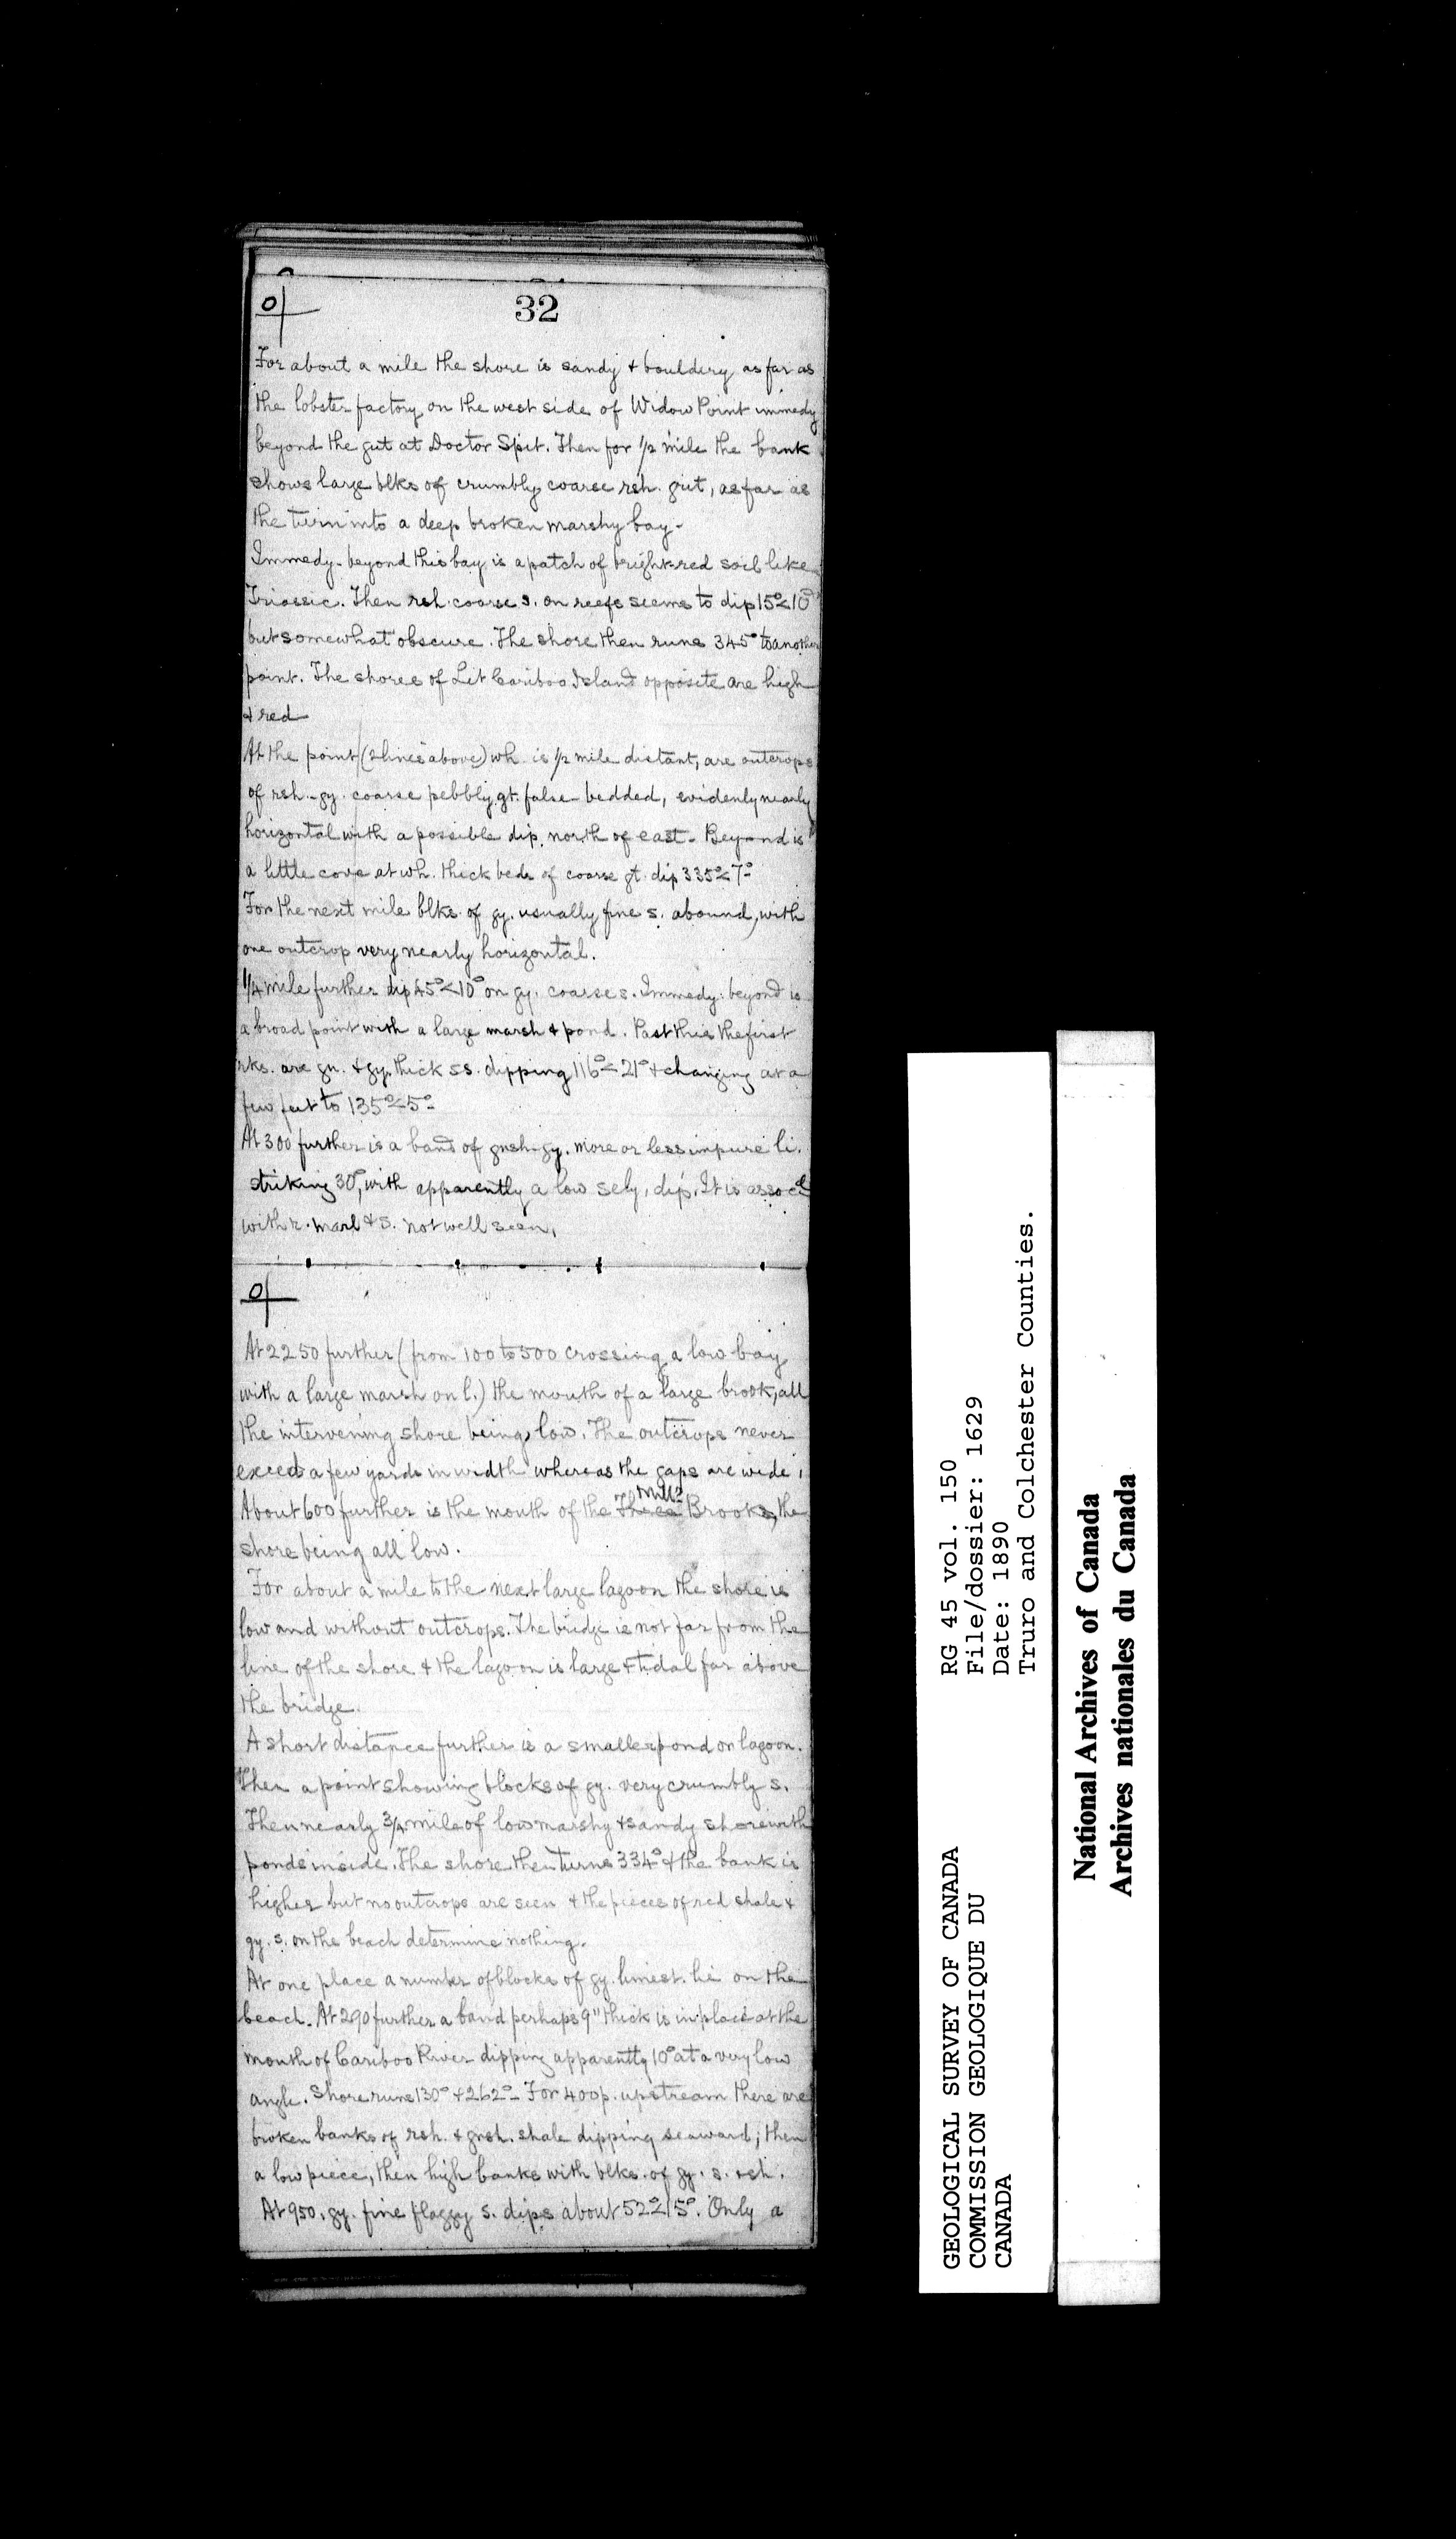 32
For about a mile the shore is sandy + bouldery as far as
the lobster factory on the west side of Widow Point immedy
beyond the gut at Doctor Spit. Then for 1/2 mile the bank
shows large blks of crumbly coarse rsh. grit, as far as
the turn into a deep broken marshy bay-
Immedy. beyond this bay is a patch of bright-red soil like
Triassic. Then rsh. coarse s. on reefs seems to dip 15°<10°
but somewhat obscure. The shore then runs 345° to another
point. The shores of Lit Cariboo Island opposite are high
+ red
At the point (2 lines above) wh. is 1/2 mile distant, are outcrops
of rsh-gy. coarse pebbly gt. false-bedded, evidenly nearly
horizontal with a possible dip north of east- Beyond is
a little cove at wh. thick beds of coarse gt. dip 335°<7°
For the next mile blks. of gy. usually fine s. abound, with
one outcrop very nearly horizontal.
1/4 mile further dip 45°<10° on gy. coarse s. Immedy. beyond is
a broad point with a large marsh + pond. Past this the first
rks. are gn. + gy. thick ss. dipping 116°<21° + changing at a
few feet to 135°<5°
At 300 further is a band of gnsh-gy. more or less impure li.
striking 30°, with apparently a low sely. dip. It is assocd
with r. marl + s. not well seen.
At 2250 further (from 100 to 500 crossing a low bay
with a large marsh on l.) the mouth of a large brook, all
the intervening shore being low. The outcrops never
exceed a few yards in width whereas the gaps are wide.
About 600 further is the mouth of the Three Mill Brooks, the
shore being all low.
For about a mile to the next large lagoon the shore is
low and without outcrops. The bridge is not far from the
line of the shore + the lagoon is large + tidal far above
the bridge.
A short distance further is a smaller pond or lagoon.
Then a point showing blocks of gy. very crumbly s.
Then nearly 3/4 mile of low marshy + sandy shore with
ponds inside. The shore then turns 334° + the bank is
higher but no outcrops are seen + the pieces of red shale +
gy. s. on the beach determine nothing.
At one place a number of blocks of gy. limest. lie on the
beach. At 290 further a band perhaps 9" thick is in place at the
mouth of Cariboo River dipping apparently 10° at a very low
angle. Shore runs 130° + 262°- For 400 p. upstream there are
broken banks of rsh. + gnsh. shale dipping seaward; then
a low piece, then high banks with blks. of gy. s. + sh.
At 950. gy. fine flaggy s. dips about 52°<15°. Only a
GEOLOGICAL SURVEY OF CANADA
COMMISSION GEOLOGIQUE DU
CANADA
RG 45 vol. 150
File/dossier: 1629
Date: 1890
Truro and Colchester Counties.
National Archives of Canada
Archives nationales du Canada